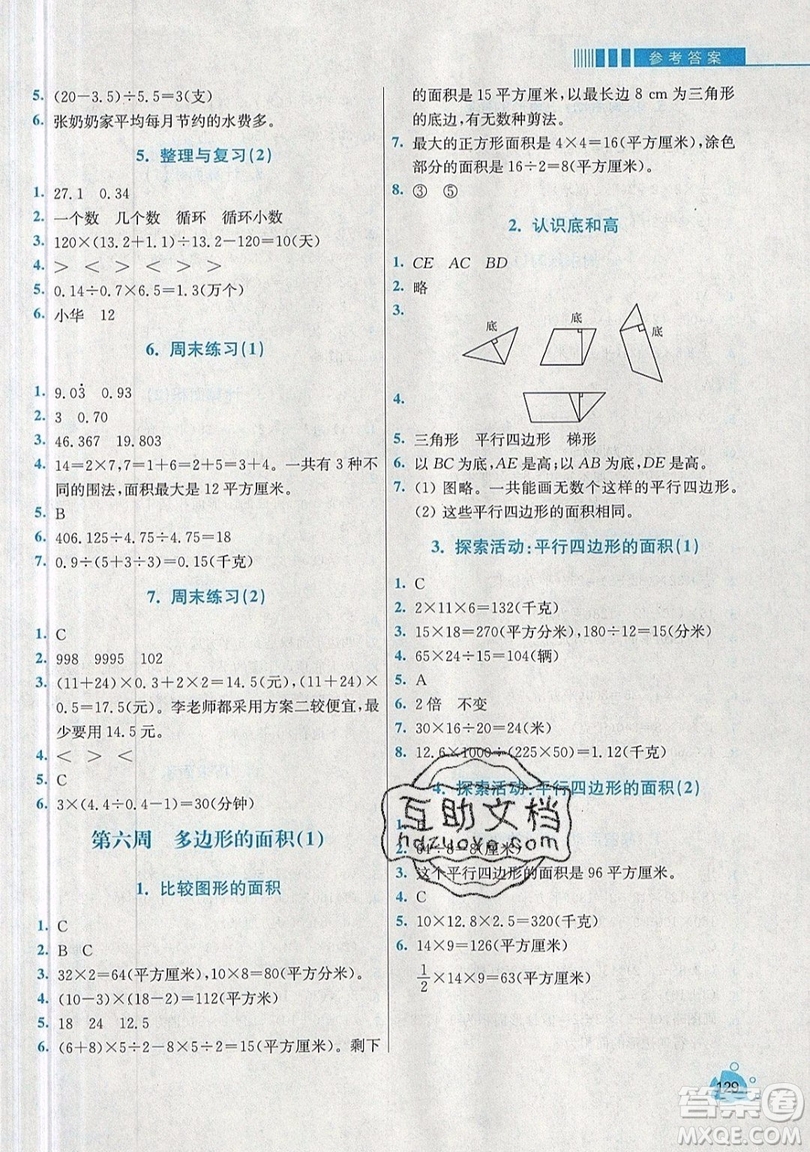 参考答案
5. (20－3.5)÷5.5=3(支)
6. 张奶奶家平均每月节约的水费多。
5. 整理与复习(2)
1. 27.1 0.34
2. 一个数 几个数 循环 循环小数
3. 120×(13.2+1.1)÷13.2－120=10(天)
4. ＞ ＜ ＜ ＞ ＞
5. 0.14÷0.7×6.5=1.3(万个)
6. 小华 12
6. 周末练习(1)
1. 9.03̇ 0.93
2. 3 0.70
3. 46.367 19.803
4. 14=2×7,7=1+6=2+5=3+4。一共有 3 种不
同的围法,面积最大是 12 平方厘米。
5. B
6. 406.125÷4.75÷4.75=18
7. 0.9÷(5+1)=0.15(千克)
7. 周末练习(2)
1. C
2. 998 9995 102
3. (11+24)×0.3+2×2=14.5(元),(11+24)×
0.5=17.5(元)。李老师都采用方案二较便宜,最
少要用 14.5 元。
4. ＜ ＞ ＞
5. C
6. 3×(4.4÷0.44)=30(分钟)
第六周 多边形的面积(1)
1. 比较图形的面积
1. C
2. B C
3. 32×2=64(平方厘米),10×8=80(平方厘米)
4. (10－3)×(18－2)=112(平方米)
5. 18 24 12.5
6. (6+8)×5÷2－5×8÷2=15(平方厘米)。剩下
的面积是 15 平方厘米,以最长边 8 cm 为三角形
的底边,有无数种剪法。
7. 最大的正方形面积是 4×4=16(平方厘米),涂色
部分的面积是 16÷2=8(平方厘米)。
8. ③ ⑤
2. 认识底和高
1. CE AC BD
2. 略
3.
底 底 底
4.
5. 三角形 平行四边形 梯形
6. 以 BC 为底,AE 是高;以 AB 为底,DE 是高。
7. (1) 图略。一共能画无数个这样的平行四边形。
(2) 这些平行四边形的面积相同。
3. 探索活动:平行四边形的面积(1)
1. C
2. 2×11×6=132(千克)
3. 15×18=270(平方分米),180÷12=15(分米)
4. 65×24÷15=104(辆)
5. A
6. 2倍 不变
7. 30×16÷20=24(米)
8. 12.6×1000÷(225×50)=1.12(千克)
4. 探索活动:平行四边形的面积(2)
1.
2. 64÷8=8(厘米)
3. 这个平行四边形的面积是 96 平方厘米。
4. C
5. 10×12.8×2.5=320(千克)
6. 14×9=126(平方厘米)
1/2×14×9=63(平方厘米)
互助文档
hdzuoye.com
129
答案圈
MXQE.COM